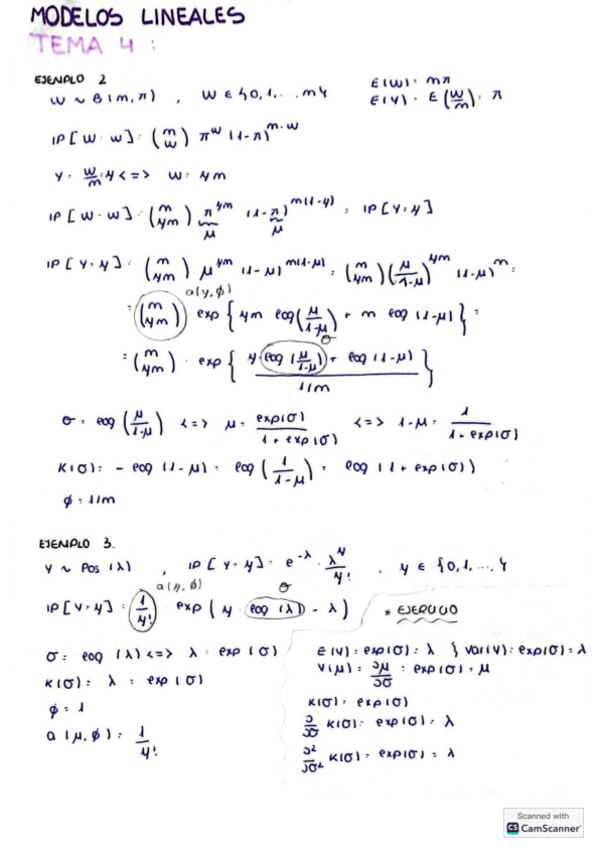 MODELOS LINEALES
TEMA 4 :
EJEMPLO 2
W ~ B(m, π) , W ∈ {0, 1, ... m} E(W) = mπ
E(Y) = E(W/m) = π
IP[W = w] = (m w) π^w (1-π)^{m-w}
Y = W/m = y <=> w = ym
IP[W = w] = (m ym) π^{ym} (1-π)^{m(1-y)} = IP[Y = y]
μ μ
IP[Y = y] = (m ym) μ^{ym} (1-μ)^{m(1-μ)} = (m ym) (μ/1-μ)^{ym} (1-μ)^m =
a(y, ϕ)
= (m ym) exp { ym log(μ/1-μ) + m log(1-μ) } =
θ
= (m ym) · exp { y log(μ/1-μ) + log(1-μ) / 1/m }
σ = log(μ/1-μ) <=> μ = exp(σ)/1+exp(σ) <=> 1-μ = 1/1+exp(σ)
K(σ) = - log(1-μ) = log(1/1-μ) = log(1+exp(σ))
ϕ = 1/m
EJEMPLO 3.
Y ~ Pos(λ) , IP[Y = y] = e^{-λ} · λ^y/y! , y ∈ {0, 1, ..., }
a(y, ϕ) θ
IP[Y = y] = 1/y! · exp(y · log(λ) - λ) * EJERCICIO
σ = log(λ) <=> λ = exp(σ) E(Y) = exp(σ) = λ } Var(Y) = exp(σ) = λ
K(σ) = λ = exp(σ) V(μ) = ∂μ/∂σ = exp(σ) = μ
ϕ = 1 K(σ) = exp(σ)
a(μ, ϕ) = 1/y! ∂/∂σ K(σ) = exp(σ) = λ
∂²/∂σ² K(σ) = exp(σ) = λ
Scanned with
CS CamScanner